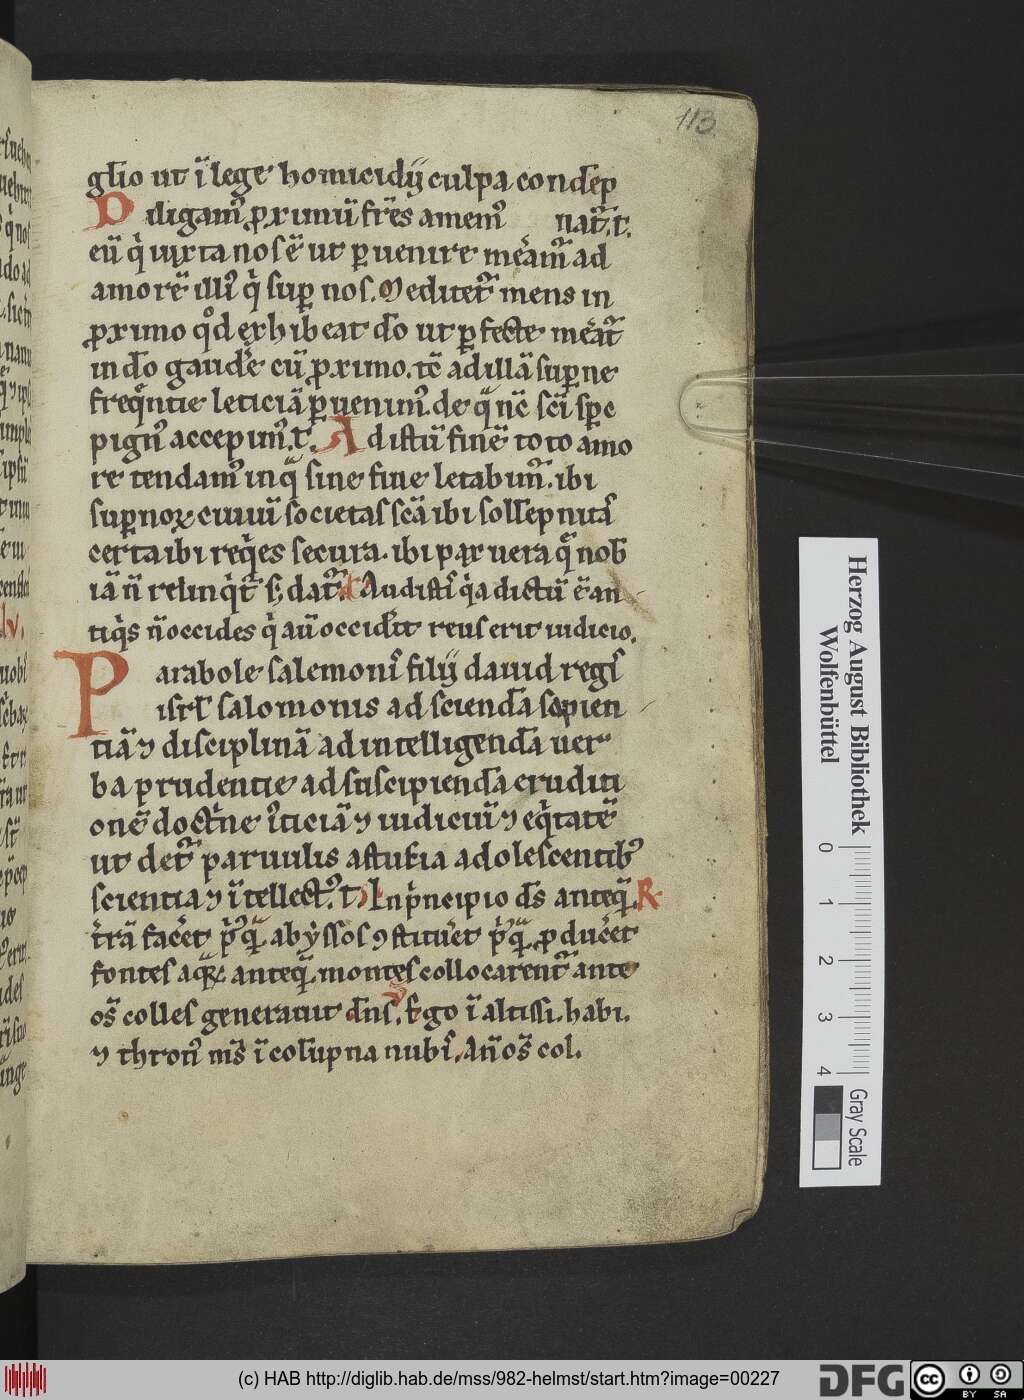 113
gl̄io ut ī lege homicidij culpa condēp
Diligam᷒ ꝓximū fr̄es amem᷒ nat᷑.t.
eū qͥ iuxta nos ē ut ꝑuenire meam᷑ ad
amorē illi᷒ qͥ suꝑ nos. Meditet᷑ mens in
ꝓximo qͦd exhibeat dō ut ꝑfecte meat᷑
in dō gaudēe cū ꝓximo. tc̄ ad illā suꝑne
freqͣntie leticiā ꝑuenim᷒. de qͣ nc̄ sc̄i spc
pign᷒ accepim᷒. t. Ad istū finē toto amo
re tendam᷒ in qͣ sine fine letabim᷑. ibi
suꝑnoꝝ ciuiū societas sc̄a ibi sollēpnitaͥ
certa ibi reqͥes secura. ibi pax uera qͣ nob̄
iā n̄ relinqͥt᷑ sꝫ dat᷑. t Audistiͥ qͥa dictū ē an
tiqͥs n̄ occides qͥ au᷑ occidͥit reus erit iudicio.
Parabole salemoniͥ filij dauid regiͥ
isrl̄ salomonis ad sciendā sapien
tiā ⁊ disciplinā ad intelligenda uer
ba prudentie ad suscipienda eruditi
onē doctͥne iͥticiā ⁊ iudiciū ⁊ eqͥtatē
ut det᷑ paruulis astutia adolescentib᷒
scientia ⁊ ītellect᷒. t. In pͥncipio ds̄ anteqͣ. R.
tr̄rā facēet pͥ᷒qͣ abẏssos ꝯstitueͥet pͥ᷒qͣ ꝓduceͥet
fontes aqͣꝝ anteqͣ montes collocarent᷑ ante
os̄ colles generauit dn̄s. Ego ī altissi. habi.
⁊ thron᷒ ms̄ ī col̄upna nubiͥ. An̄ os̄ col.
Herzog August Bibliothek
Wolfenbüttel
0 1 2 3 4
Gray Scale
(c) HAB http://diglib.hab.de/mss/982-helmst/start.htm?image=00227
DFG
cc BY SA